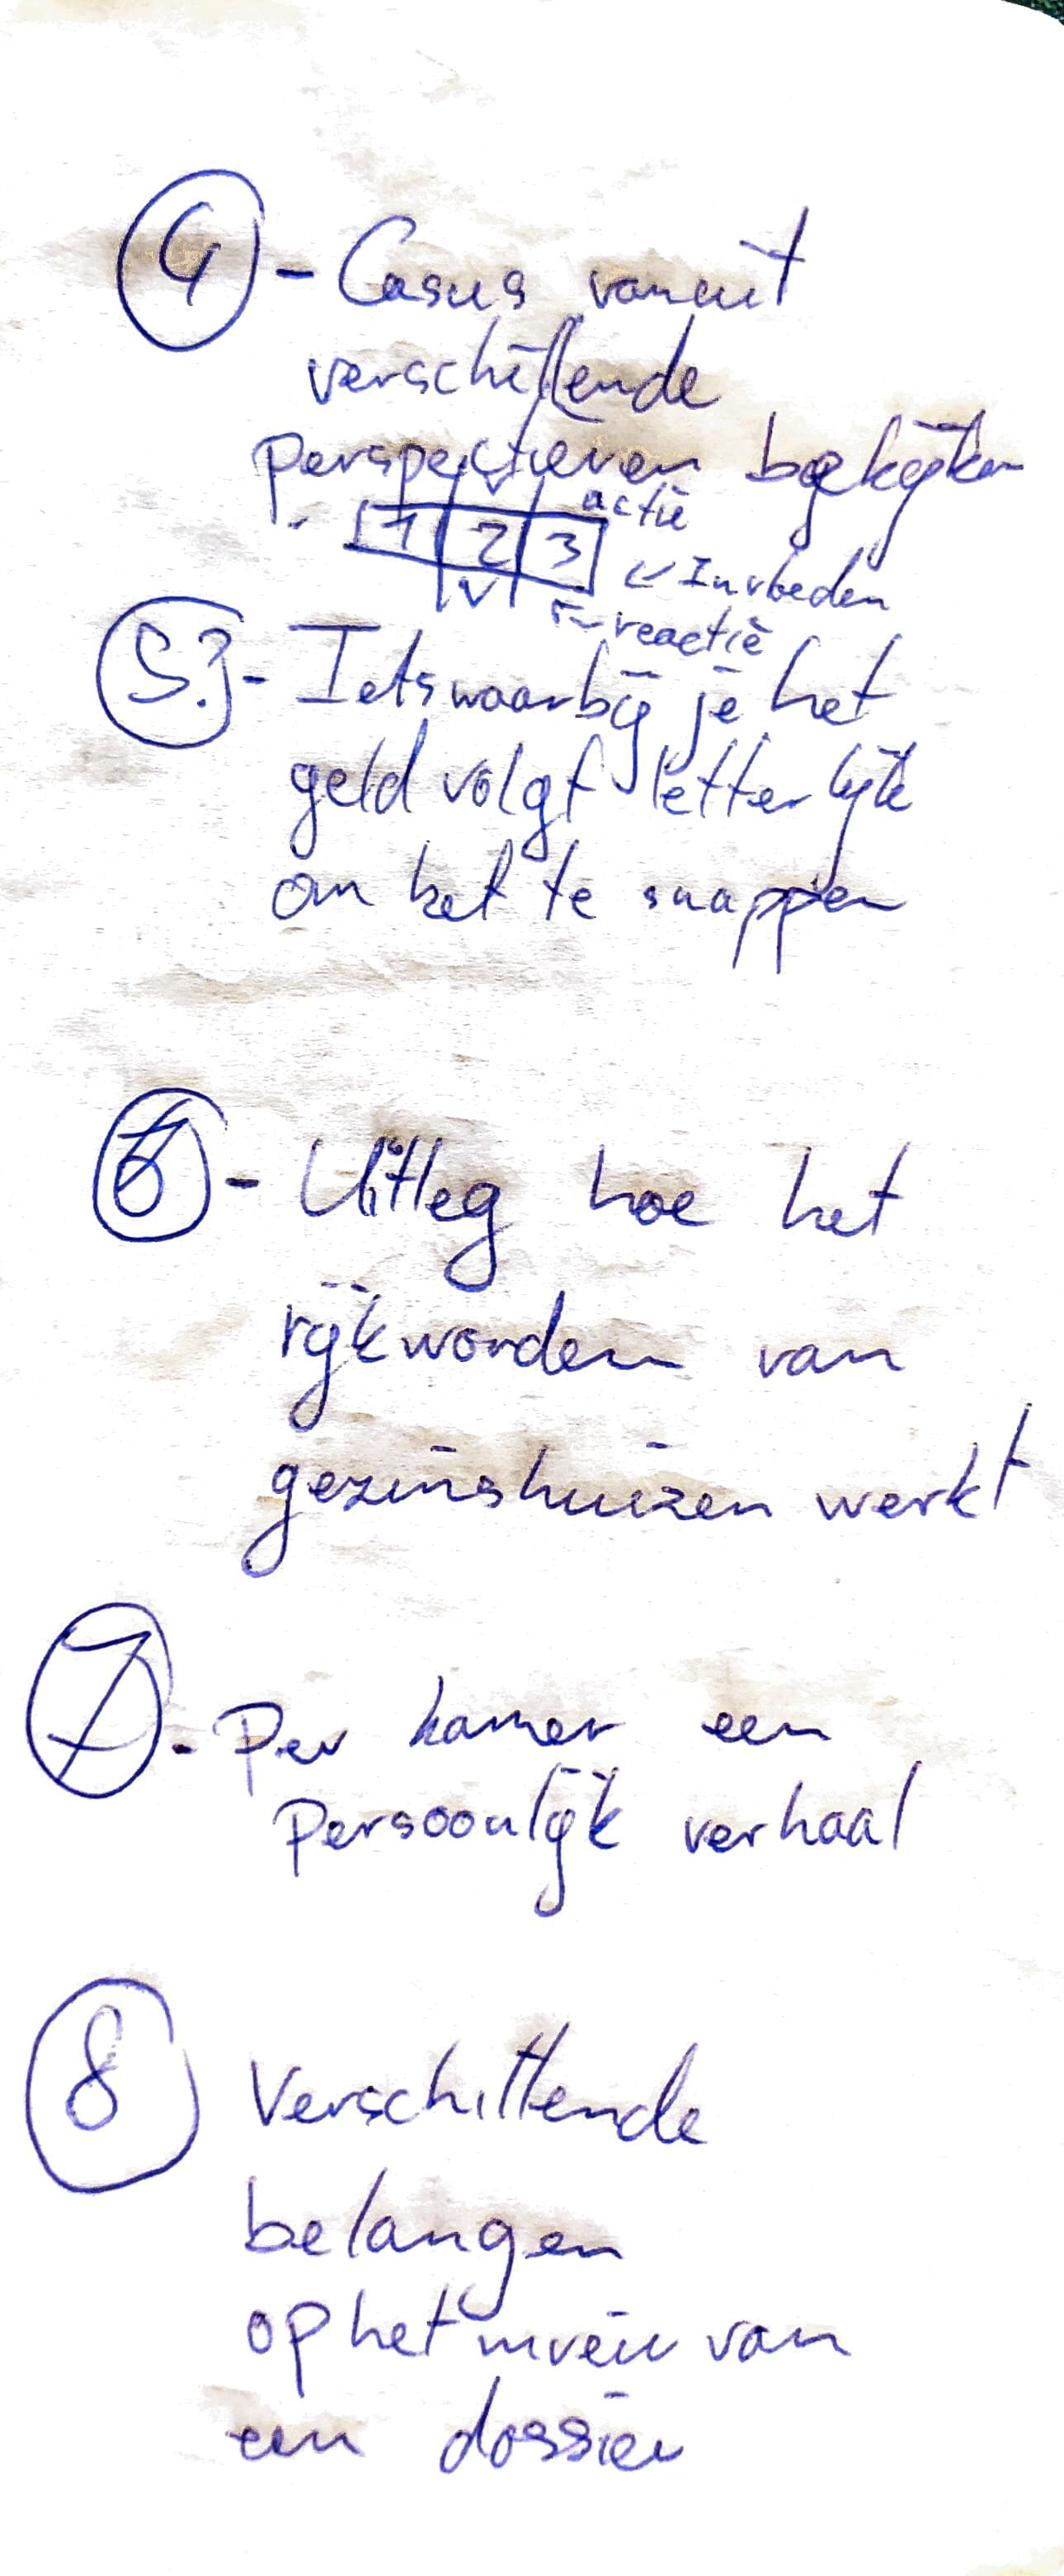 4 - Casus vanuit
verschillende
perspectieven bekijken
1 2 3 actie
Invloeden
reactie
5? - Iets waarbij je het
geld volgt letterlijk
om het te snappen
6 - Uitleg hoe het
rijk worden van
gezinshuizen werkt
7 - Per kamer een
Persoonlijk verhaal
8 Verschillende
belangen
op het niveau van
een dossier